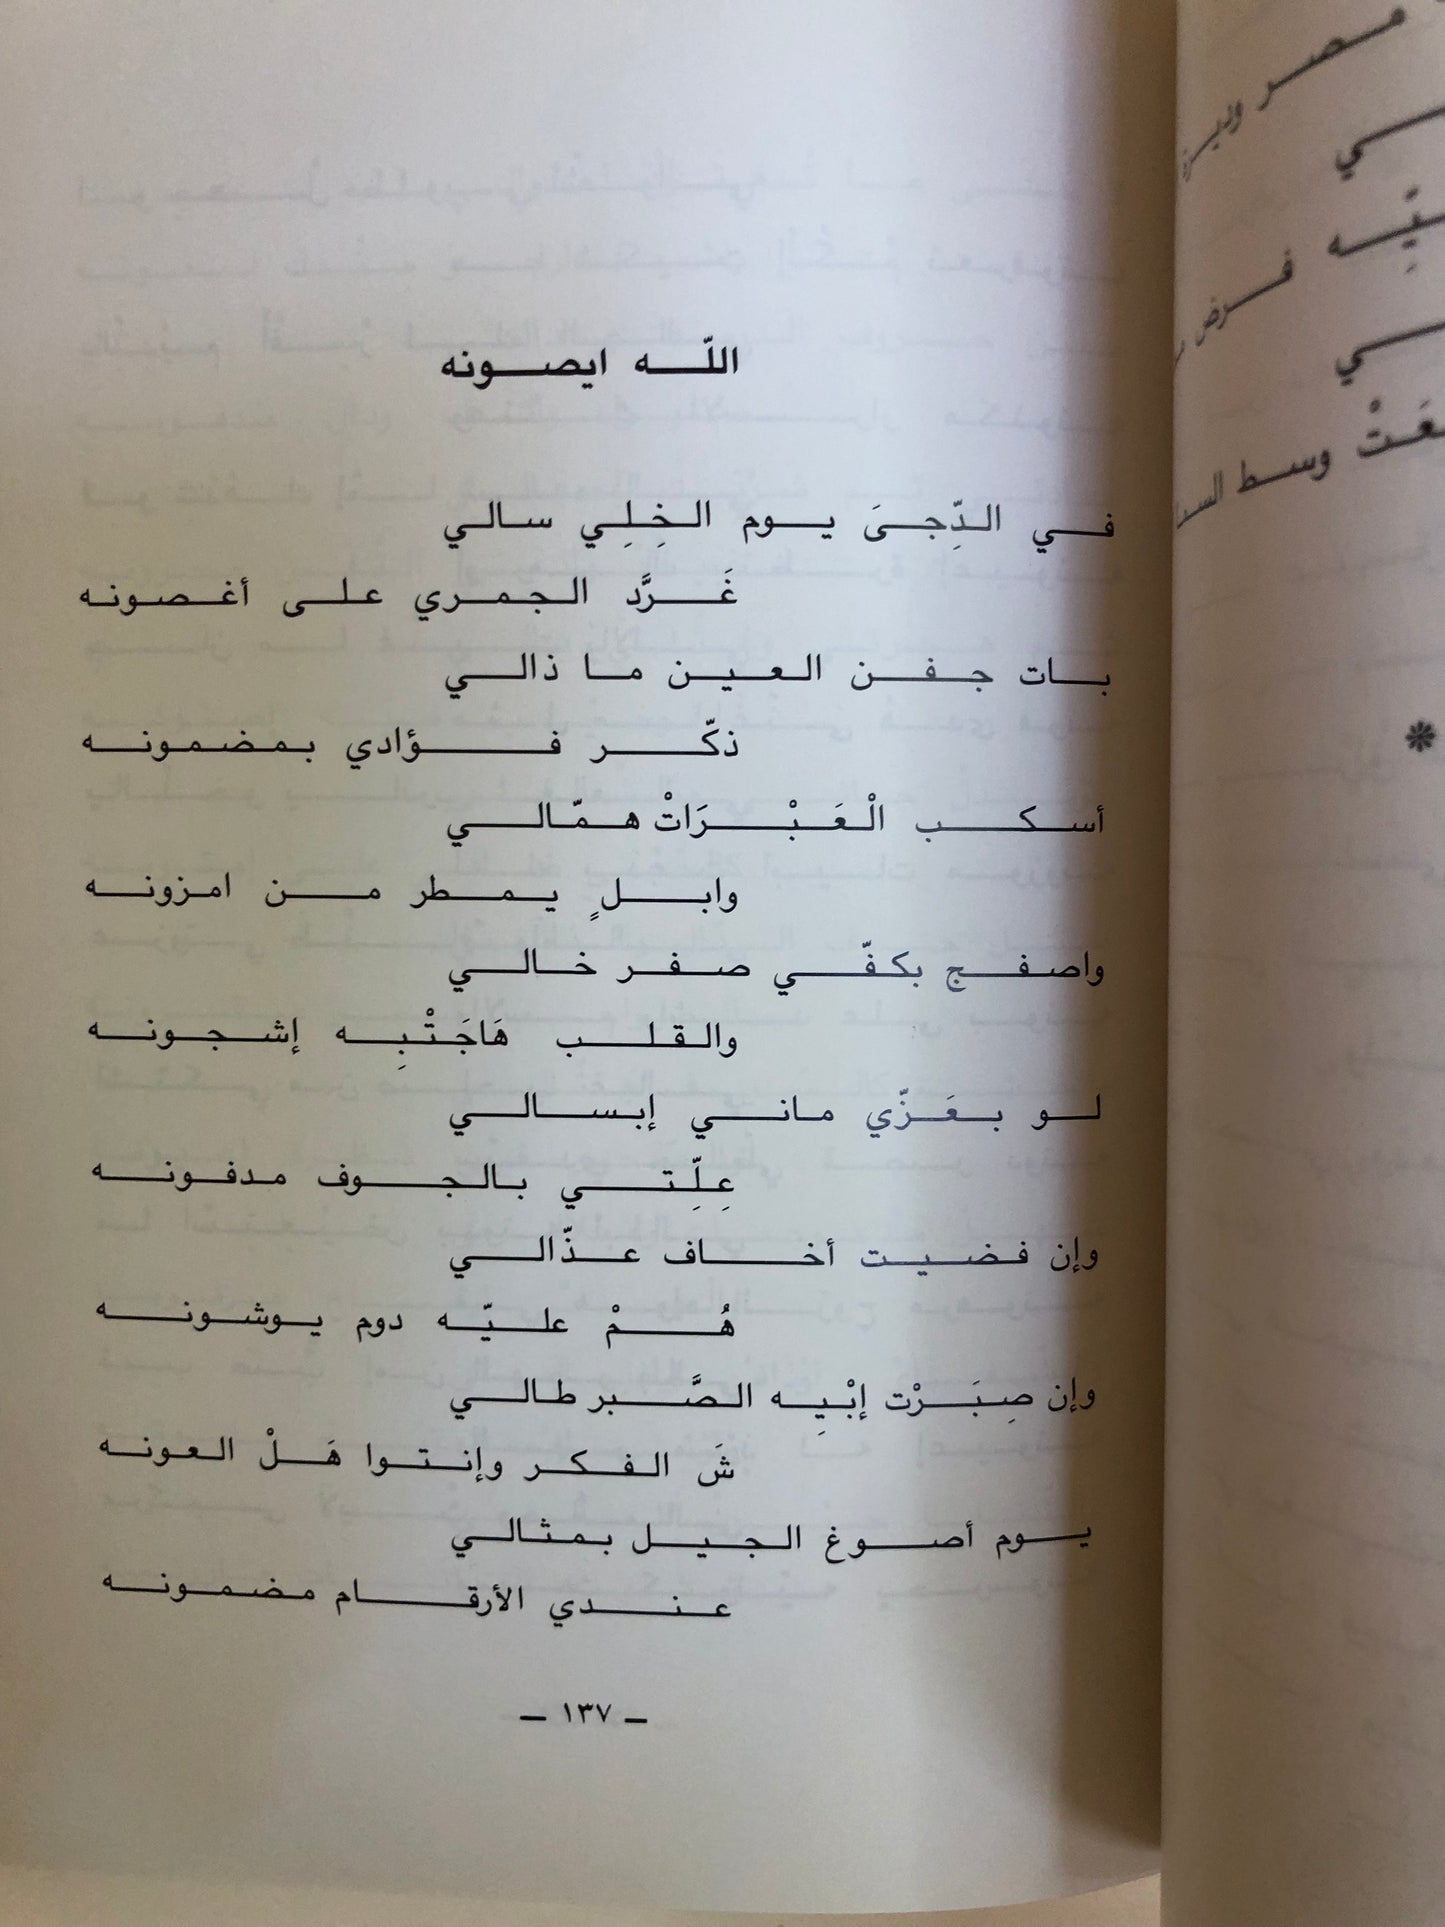 اللّه ايصونه
في الدِّجىَ يوم الخِلِي سالي
غَرَّد الجمري على أغصونه
بات جفن العين ما ذالي
ذكّر فؤادي بمضمونه
أسكب الْعَبْرَاتْ همّالي
وابلٍ يمطر من امزونه
واصفج بكفّي صفر خالي
والقلب هَاجَتْبِه إشجونه
لو بعَزّي ماني إبسالي
عِلِّتي بالجوف مدفونه
وإن فضيت أخاف عذّالي
هُمْ عليّه دوم يوشونه
وإن صِبَرْت إبْيِه الصَّبر طالي
شَ الفكر وإنتوا هَلْ العونه
يوم أصوغ الجيل بمثالي
عندي الأرقام مضمونه
– ١٣٧ –
مصر
فرض
عَتْ وسط